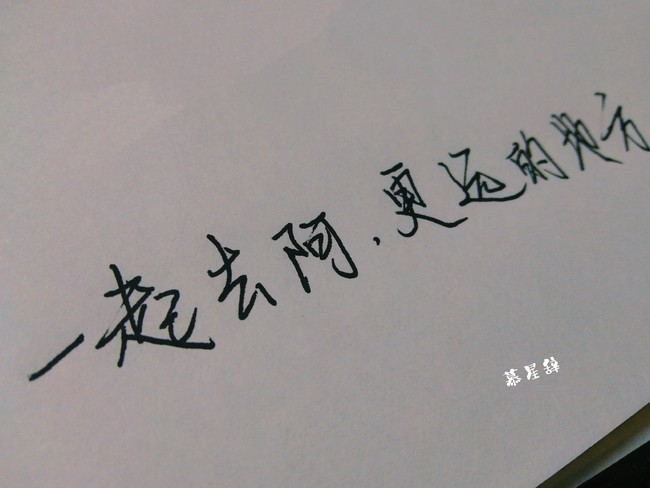 一起去阿、更远的地方
慕星辞